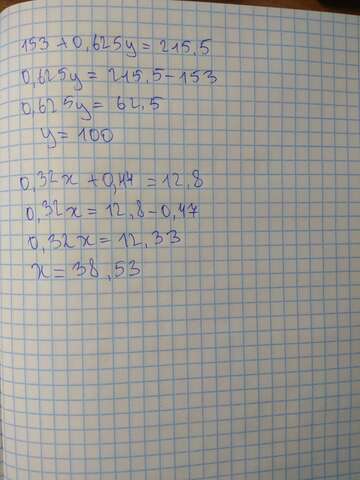 153 + 0,625y = 215,5
0,625y = 215,5 - 153
0,625y = 62,5
y = 100
0,32x + 0,47 = 12,8
0,32x = 12,8 - 0,47
0,32x = 12,33
x = 38,53